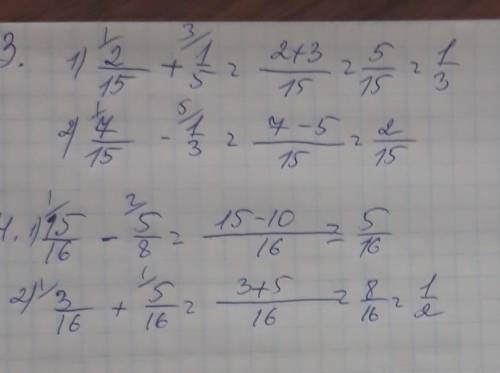 3. 1) ¹/2/15 + ³/1/5 = 2+3/15 = 5/15 = 1/3
2) ¹/7/15 - ⁵/1/3 = 7-5/15 = 2/15
4. 1) ¹/15/16 - ²/5/8 = 15-10/16 = 5/16
2) ¹/3/16 + ¹/5/16 = 3+5/16 = 8/16 = 1/2